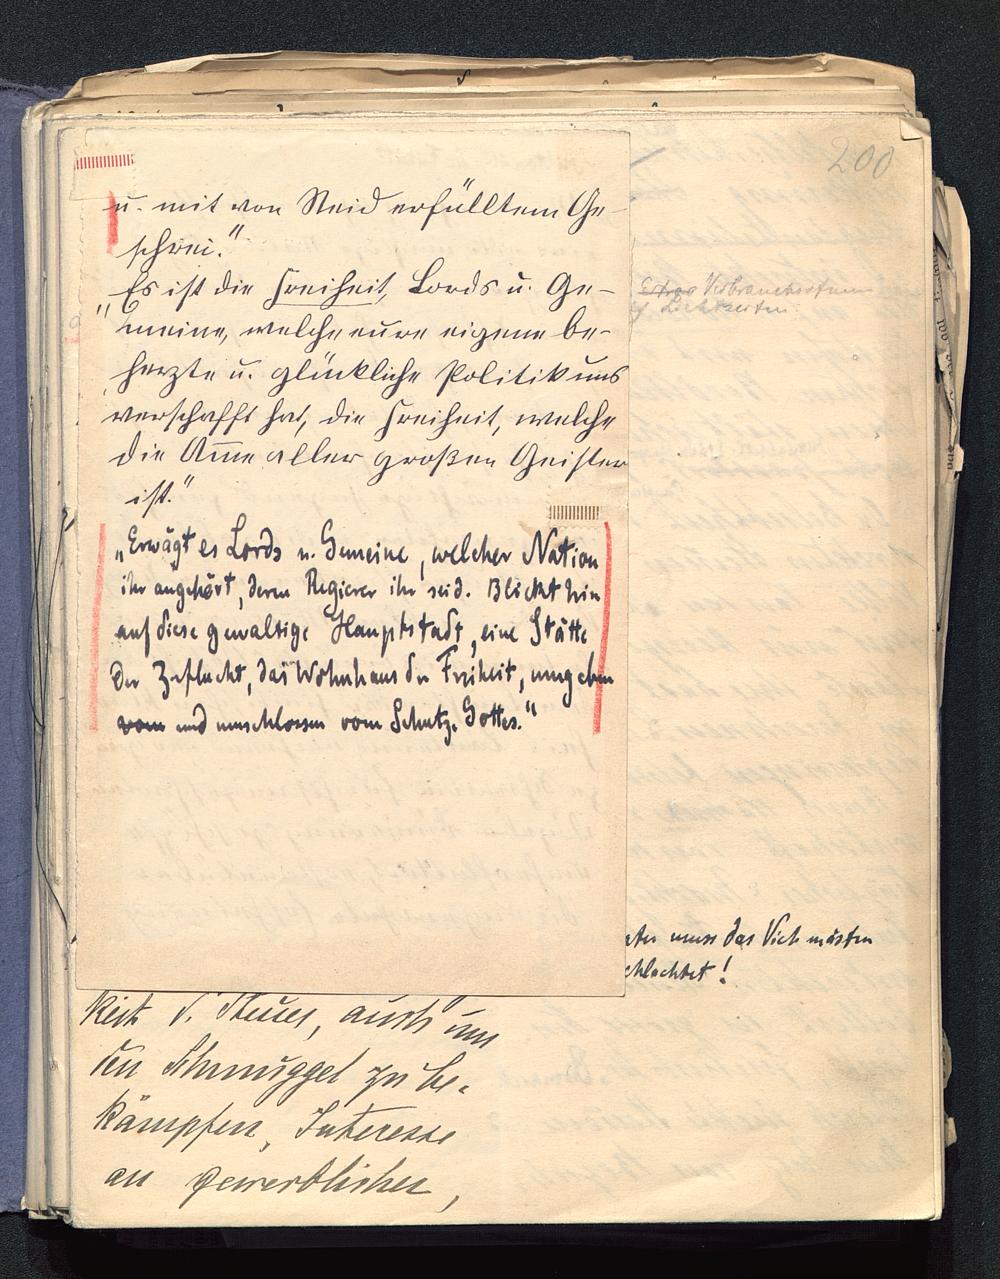 200
u. mit von Neid erfülltem Ge-
schrei."
„Es ist die Freiheit, Lords u. Ge-
meine, welche eure eigene be-
herzte u. glückliche Politik uns
verschafft hat, die Freiheit, welche
die Am̅e aller großen Geister
ist."
„Erwägt es Lords u. Gemeine, welcher Nation
ihr angehört, deren Regierer ihr seid. Blickt hin
auf diese gewaltige Hauptstadt, eine Stätte
der Zuflucht, das Wohnhaus der Freiheit, umgeben
vom und umschlossen vom Schutze Gottes."
muss das Vieh mästen
schlachtet!
keit d. Steuer, auch um
den Schmuggel zu be-
kämpfen, Interesse
an gewerblicher,